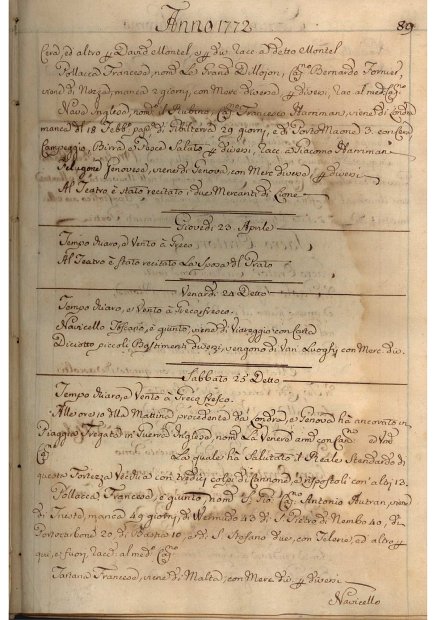 Anno 1772
89
Cera, ed altro p David Montel, e p div. racc. a detto Montel
Pollacca Francese, nom. La Grand Dillojon, Cap. Bernardo Fornier,
viene di Nizza, manca 2 giorni, con Merc. diverse p diversi, rac. al med. Cap.
Nave Inglese, nom. il Rubino, Cap. Francesco Harriman, viene di Londra
manca dal 18 Febb. pas. di Gibilterra 29 giorni, e di Porto Maone 3. con Cera
Campeggio, Birra, e Pesce Salato p diversi, racc. a Giacomo Harriman
Felugone Genovese, viene di Genova, con Merc. diverse, p diversi
Al Teatro è stato recitato i due Mercanti di Lione
Giovedì 23 Aprile
Tempo chiaro, e Vento à Greco
Al Teatro è stato recitato La Sposa di Prato
Venardì 24 Detto
Tempo chiaro, e Vento à Greco fresco.
Navicello Toscano, è giunto, viene di Viareggio con Carta
Diciotto piccoli Bastimenti diversi, vengono di vari Luoghi con Merc. div.
Sabbato 25 Detto
Tempo chiaro, e Vento à Greco fresco.
Alle ore 10 della Mattina procedente da Londra, e Genova hà ancorato in
Piaggia Fregata in Guerra Inglese, nom. La Venere
Cap. La quale hà Salutato il Reale Stendardo di
questa Fortezza Vecchia con tredici colpi di Cannone, e rispostoli con altri 13.
Pollacca Francese, è giunto, nom. Cap. Antonio Autran, viene
di Trieste, manca 49 giorni, di 43 di S. Pietro di Nembo 40, di
Portocarbone 20, di Bastia 10, e di S. Stefano due, con Telerie, ed altro p
qui, e fuori, racc. al med. Cap.
Tartana Francese, viene di Malta, con Merc. div. p diversi
Navicello